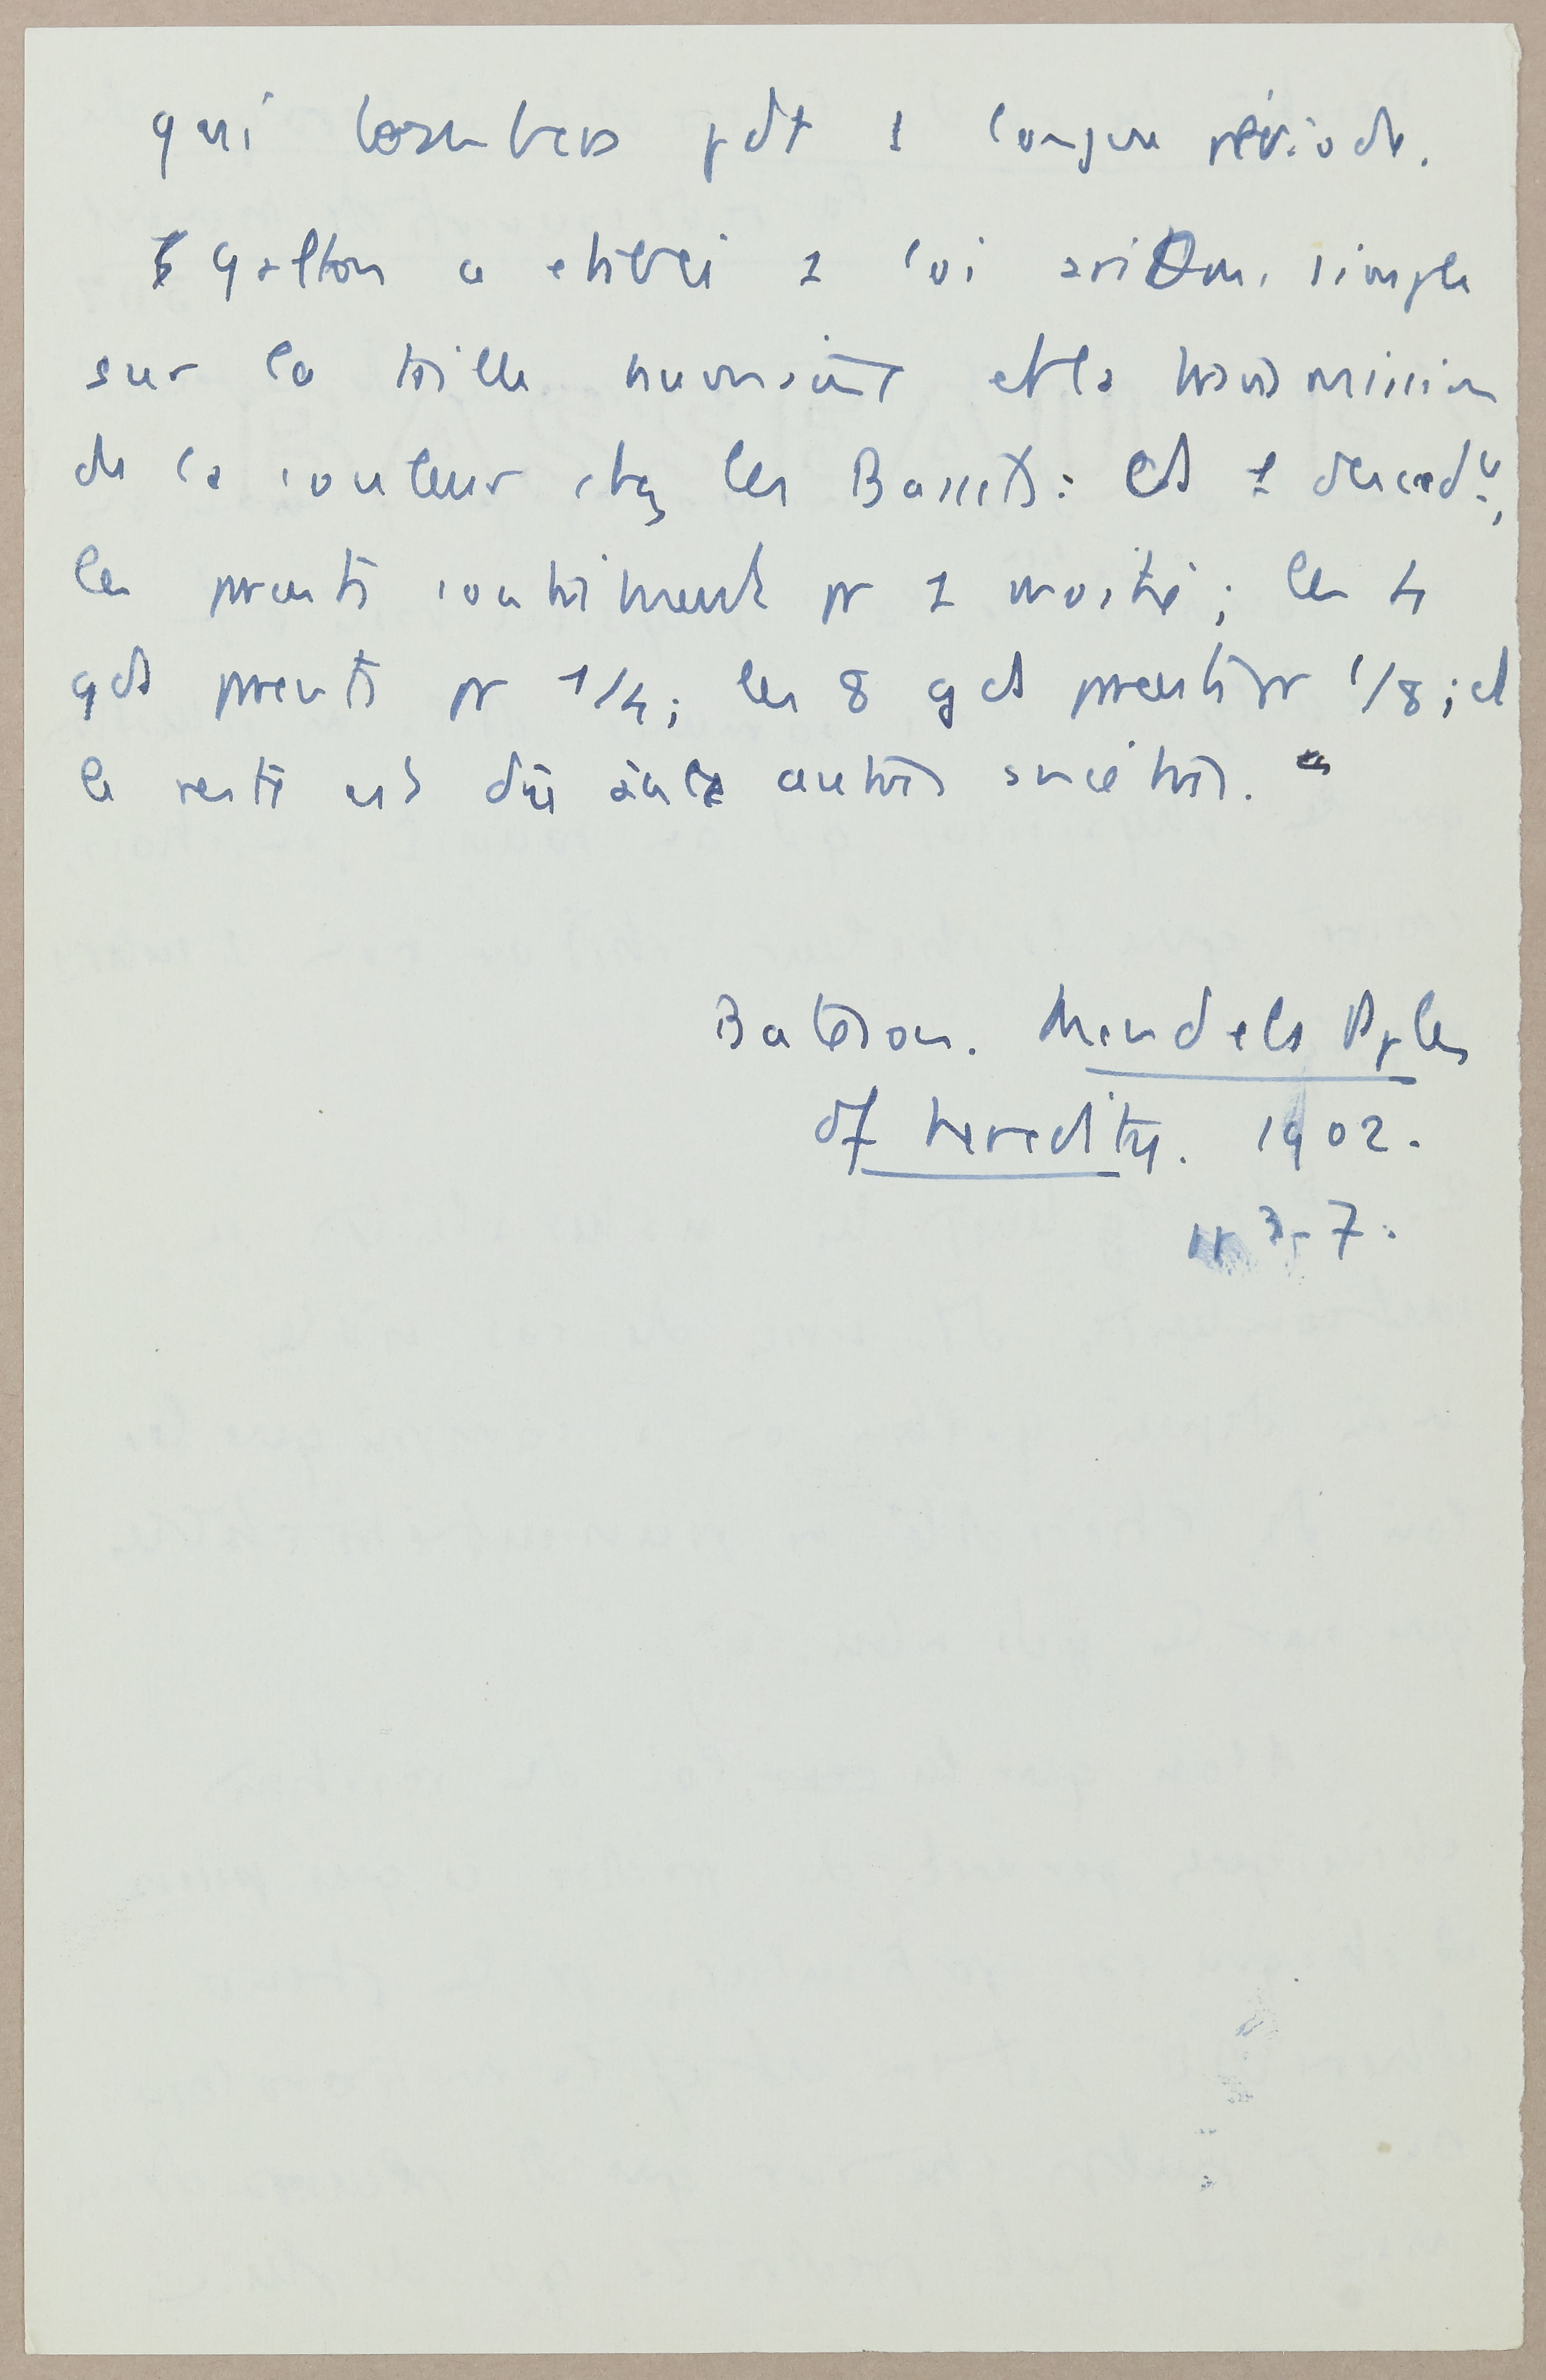 qui pdt 1 longue période.
Galton a établi 1 loi arithm. simple
sur la taille humaine et la transmission
de la couleur chez les Bassets :
les parents contribuent pr 1 moitié ; les 4
gds parents pr 1/4 ; les 8 gds parents pr 1/8 ; et
le reste est dû autres ancêtres.
Bateson. Mendels Pples
of heredity. 1902.
3-7.